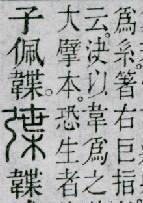 爲系箸右巨指
云決以韋爲之
大擘本恐生者
子佩韘韘